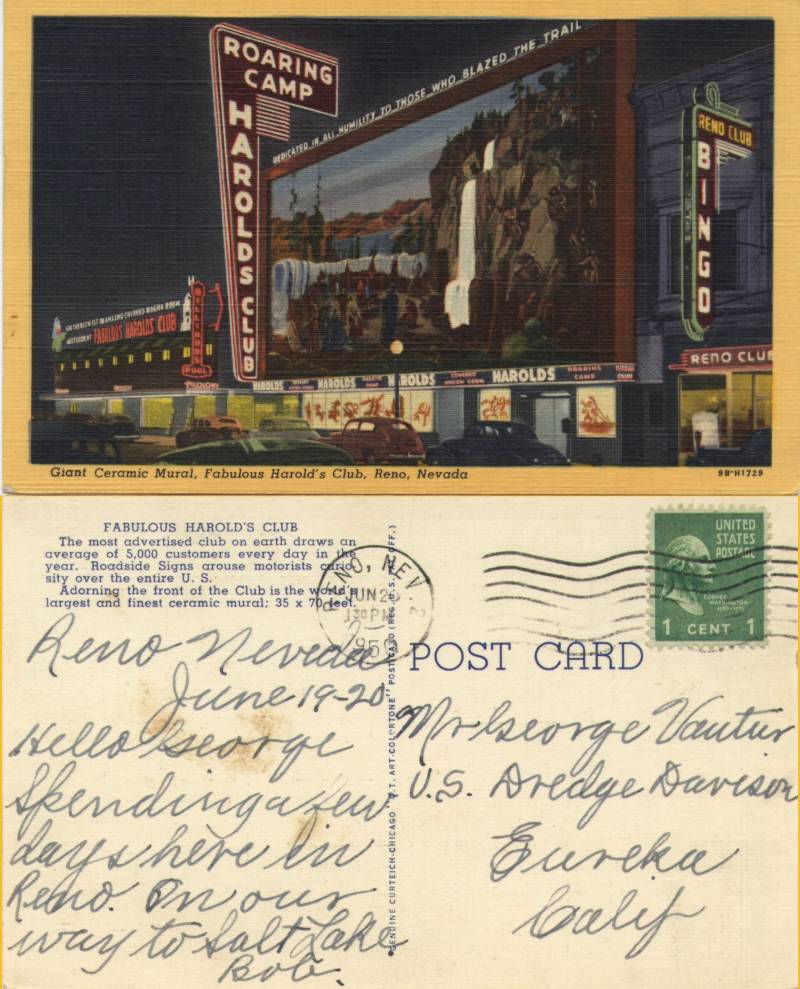 ROARING
CAMP
HAROLDS CLUB
DEDICATED IN ALL HUMILITY TO THOSE WHO BLAZED THE TRAIL
RENO CLUB
BINGO
FABULOUS HAROLDS CLUB
BILLIARDS
POOL
HAROLDS HAROLDS HAROLDS HAROLDS
COVERED
WAGON ROOM
ROARING
CAMP
RENO CLUB
Giant Ceramic Mural, Fabulous Harold's Club, Reno, Nevada
9B-H1729
FABULOUS HAROLD'S CLUB
The most advertised club on earth draws an
average of 5,000 customers every day in the
year. Roadside Signs arouse motorists curio-
sity over the entire U. S.
Adorning the front of the Club is the world's
largest and finest ceramic mural; 35 x 70 feet.
RENO, NEV. 2
JUN 20
130 PM
195
UNITED
STATES
POSTAGE
GEORGE
WASHINGTON
1 CENT 1
POST CARD
GENUINE CURTEICH-CHICAGO "C.T. ART-COLORTONE" POSTCARD (REG. U.S. PAT. OFF.)
Reno Nevada
June 19-20
Hello George
Spending a few
days here in
Reno. On our
way to Salt Lake
Bob.
Mr George Vantur
U.S. Dredge Davison
Eureka
Calif